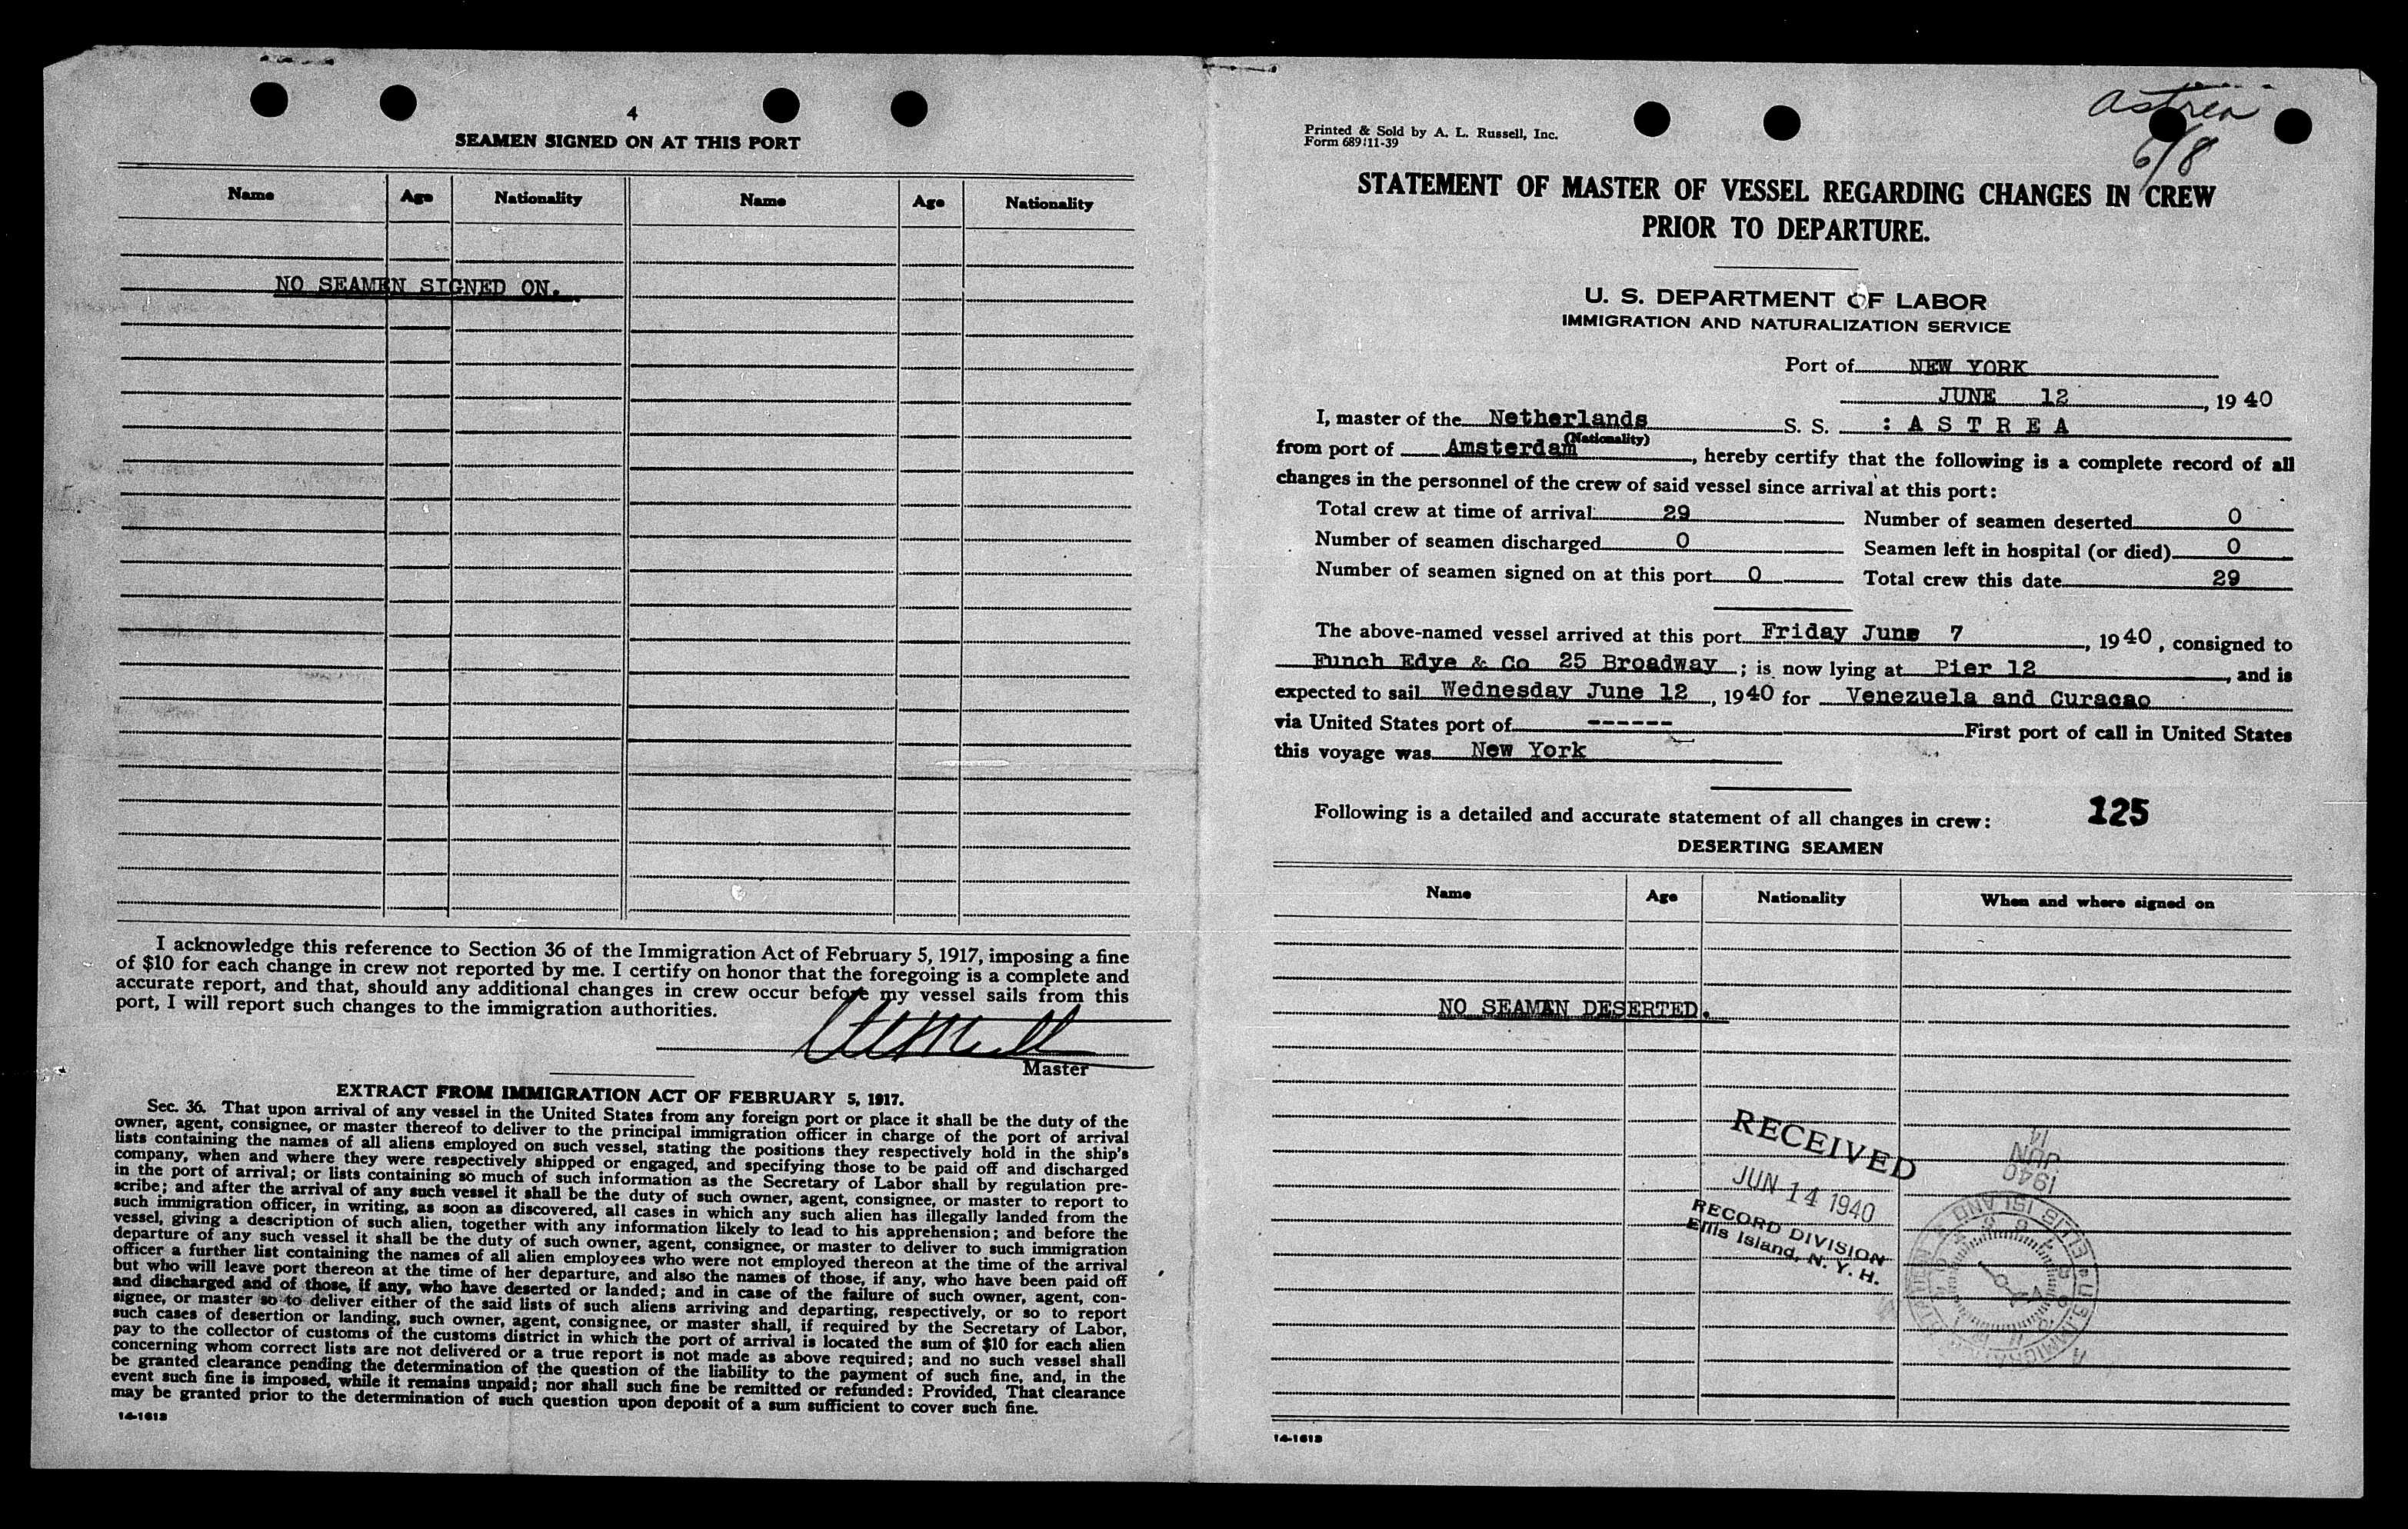 4
SEAMEN SIGNED ON AT THIS PORT
Name Age Nationality Name Age Nationality
NO SEAMEN SIGNED ON.
I acknowledge this reference to Section 36 of the Immigration Act of February 5, 1917, imposing a fine
of $10 for each change in crew not reported by me. I certify on honor that the foregoing is a complete and
accurate report, and that, should any additional changes in crew occur before my vessel sails from this
port, I will report such changes to the immigration authorities.
Master
EXTRACT FROM IMMIGRATION ACT OF FEBRUARY 5, 1917.
Sec. 36. That upon arrival of any vessel in the United States from any foreign port or place it shall be the duty of the
owner, agent, consignee, or master thereof to deliver to the principal immigration officer in charge of the port of arrival
lists containing the names of all aliens employed on such vessel, stating the positions they respectively hold in the ship's
company, when and where they were respectively shipped or engaged, and specifying those to be paid off and discharged
in the port of arrival; or lists containing so much of such information as the Secretary of Labor shall by regulation pre-
scribe; and after the arrival of any such vessel it shall be the duty of such owner, agent, consignee, or master to report to
such immigration officer, in writing, as soon as discovered, all cases in which any such alien has illegally landed from the
vessel, giving a description of such alien, together with any information likely to lead to his apprehension; and before the
departure of any such vessel it shall be the duty of such owner, agent, consignee, or master to deliver to such immigration
officer a further list containing the names of all alien employees who were not employed thereon at the time of the arrival
but who will leave port thereon at the time of her departure, and also the names of those, if any, who have been paid off
and discharged and of those, if any, who have deserted or landed; and in case of the failure of such owner, agent, con-
signee, or master so to deliver either of the said lists of such aliens arriving and departing, respectively, or so to report
such cases of desertion or landing, such owner, agent, consignee, or master shall, if required by the Secretary of Labor,
pay to the collector of customs of the customs district in which the port of arrival is located the sum of $10 for each alien
concerning whom correct lists are not delivered or a true report is not made as above required; and no such vessel shall
be granted clearance pending the determination of the question of the liability to the payment of such fine, and, in the
event such fine is imposed, while it remains unpaid; nor shall such fine be remitted or refunded: Provided, That clearance
may be granted prior to the determination of such question upon deposit of a sum sufficient to cover such fine.
14-1613
Astrea
6/8
Printed & Sold by A. L. Russell, Inc.
Form 689:11-39
STATEMENT OF MASTER OF VESSEL REGARDING CHANGES IN CREW
PRIOR TO DEPARTURE.
U. S. DEPARTMENT OF LABOR
IMMIGRATION AND NATURALIZATION SERVICE
Port of NEW YORK
JUNE 12, 1940
I, master of the Netherlands S. S. : A S T R E A
(Nationality)
from port of Amsterdam, hereby certify that the following is a complete record of all
changes in the personnel of the crew of said vessel since arrival at this port:
Total crew at time of arrival 29 Number of seamen deserted 0
Number of seamen discharged 0 Seamen left in hospital (or died) 0
Number of seamen signed on at this port 0 Total crew this date 29
The above-named vessel arrived at this port Friday June 7, 1940, consigned to
Funch Edye & Co 25 Broadway; is now lying at Pier 12, and is
expected to sail Wednesday June 12, 1940 for Venezuela and Curacao
via United States port of ------ First port of call in United States
this voyage was New York
Following is a detailed and accurate statement of all changes in crew: 125
DESERTING SEAMEN
Name Age Nationality When and where signed on
NO SEAMEN DESERTED.
RECEIVED
JUN 14 1940
RECORD DIVISION
Ellis Island, N. Y. H.
14
JUN
1940
ELLIS ISLAND
14-1613